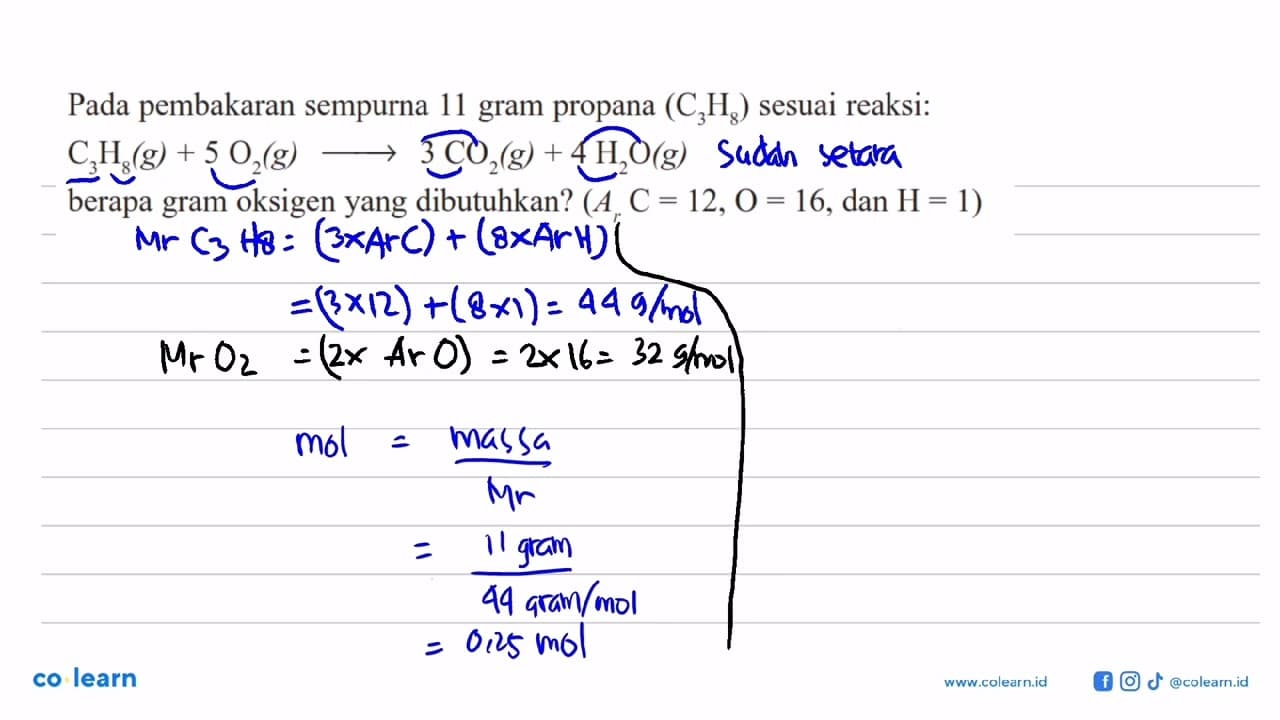 Pada pembakaran sempurna 11 gram propana (C₃H₈) sesuai reaksi:
C₃H₈(g) + 5 O₂(g) ⟶ 3 CO₂(g) + 4 H₂O(g) sudah setara
berapa gram oksigen yang dibutuhkan? (Aᵣ C = 12, O = 16, dan H = 1)
Mr C₃ H₈ = (3×Ar C) + (8×Ar H)
= (3×12) + (8×1) = 44 g/mol
Mr O₂ = (2× Ar O) = 2×16 = 32 g/mol
mol = massa
Mr
= 11 gram
44 gram/mol
= 0,25 mol
co learn
www.colearn.id
@colearn.id